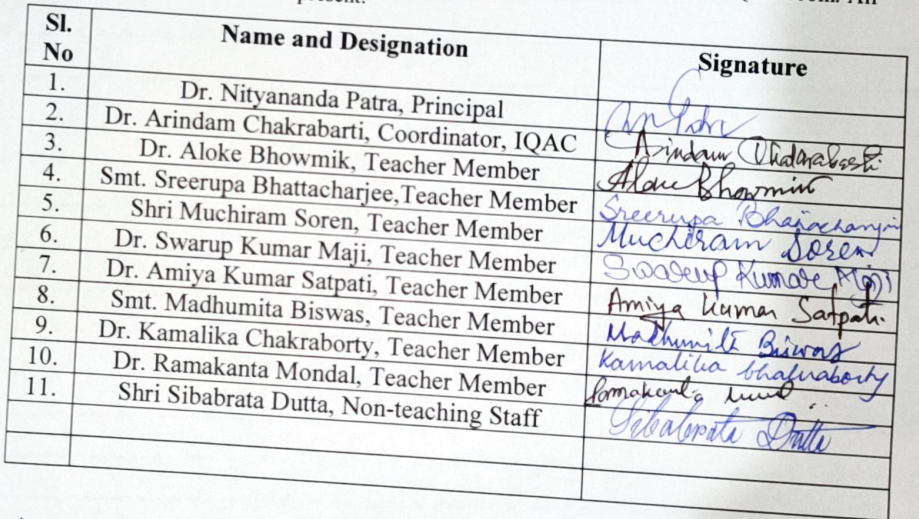 present.
Sl. No Name and Designation Signature
1. Dr. Nityananda Patra, Principal
2. Dr. Arindam Chakrabarti, Coordinator, IQAC Arindam Chakrabarti
3. Dr. Aloke Bhowmik, Teacher Member Aloke Bhowmik
4. Smt. Sreerupa Bhattacharjee,Teacher Member Sreerupa Bhattacharjee
5. Shri Muchiram Soren, Teacher Member Muchiram Soren
6. Dr. Swarup Kumar Maji, Teacher Member Swarup Kumar Maji
7. Dr. Amiya Kumar Satpati, Teacher Member Amiya Kumar Satpati
8. Smt. Madhumita Biswas, Teacher Member Madhumita Biswas
9. Dr. Kamalika Chakraborty, Teacher Member Kamalika Chakraborty
10. Dr. Ramakanta Mondal, Teacher Member Ramakanta
11. Shri Sibabrata Dutta, Non-teaching Staff Sibabrata Dutta